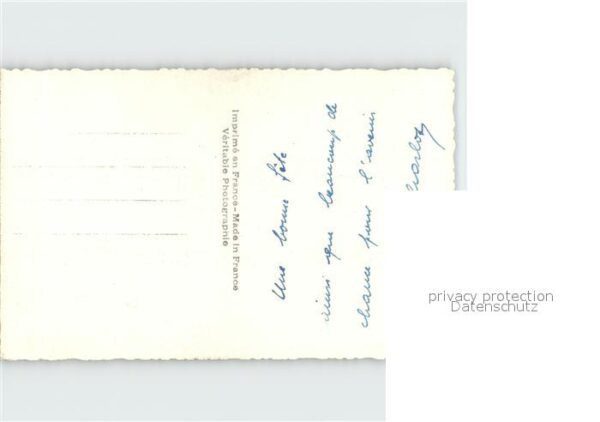 Imprimé en France - Made in France
Véritable Photographie
Une bonne fête
ainsi que beaucoup de
chance pour l'avenir
privacy protection
Datenschutz